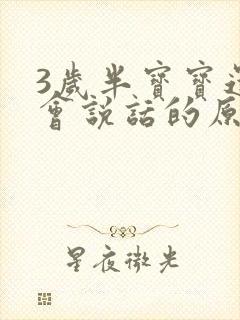 3歲半寶寶還
會說話的原
星夜微光